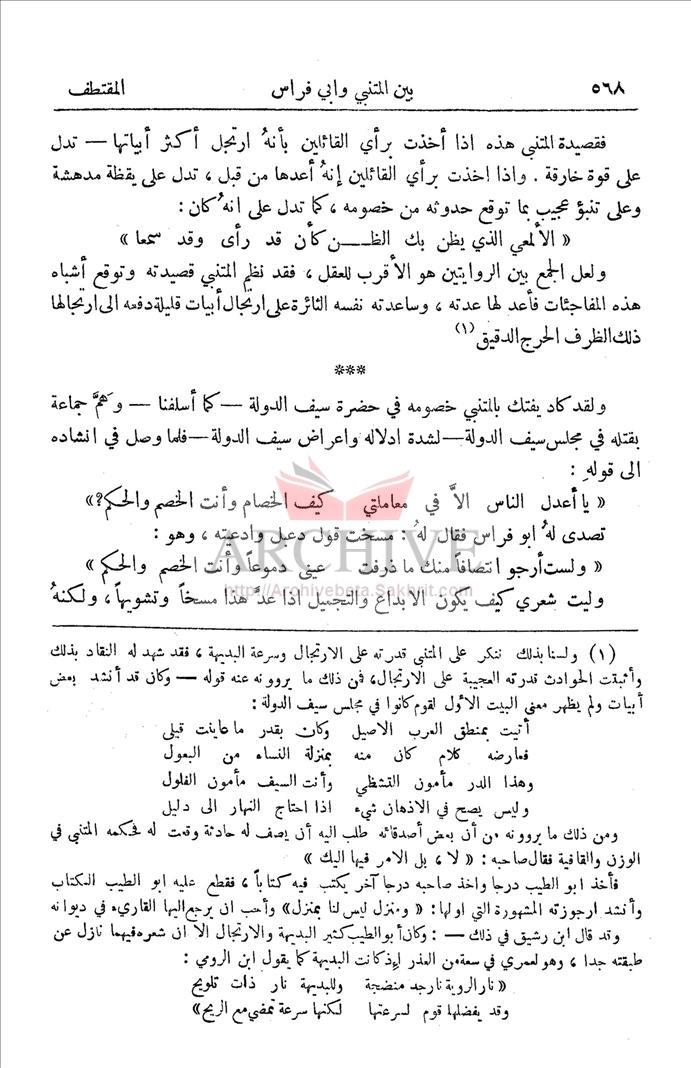 ٥٦٨ بين المتنبي وابي فراس المقتطف
فقصيدة المتنبي هذه اذا أخذت برأي القائلين بأنهُ ارتجل أكثر أبياتها — تدل
على قوة خارقة . واذا اخذت برأي القائلين إنهُ أعدها من قبل ، تدل على يقظة مدهشة
وعلى تنبؤ عجيب بما توقع حدوثه من خصومه ، كما تدل على انهُ كان :
« الألمعي الذي يظن بك الظـــن كأن قد رأى وقد سمعا »
ولعل الجمع بين الروايتين هو الأقرب للعقل ، فقد نظم المتنبي قصيدته وتوقع أشباه
هذه المفاجئات فأعد لها عدته ، وساعدته نفسه الثائرة على ارتجال أبيات قليلة دفعه الى ارتجالها
ذلك الظرف الحرج الدقيق (١)
***
ولقد كاد يفتك بالمتنبي خصومه في حضرة سيف الدولة — كما أسلفنا — وهمَّ جماعة
بقتله في مجلس سيف الدولة — لشدة ادلاله واعراض سيف الدولة — فلما وصل في انشاده
الى قوله :
« يا أعدل الناس الاَّ في معاملتي كيف الخصام وأنت الخصم والحكم ? »
تصدى لهُ ابو فراس فقال لهُ : مسخت قول دعبل وادعيته ، وهو :
« ولست أرجو انتصافاً منك ما ذرفت عيني دموعاً وأنت الخصم والحكم »
وليت شعري كيف يكون الابداع والتجميل اذا عدَّ هذا مسخاً وتشويهاً ، ولكنهُ
(١) ولسنا بذلك ننكر على المتنبي قدرته على الارتجال وسرعة البديهة ، فقد شهد له النقاد بذلك
وأثبقت الحوادث قدرته العجيبة على الارتجال، فمن ذلك ما يروونه عنه قوله — وكان قد أنشد بعض
أبيات ولم يظهر معنى البيت الأول لقوم كانوا في مجلس سيف الدولة :
أتيت بمنطق العرب الاصيل وكان بقدر ما عاينت قيلي
فعارضه كلام كان منه بمنزلة النساء من البعول
وهذا الدر مأمون التشظي وأنت السيف مأمون الفلول
وليس يصح في الاذهان شيء اذا احتاج النهار الى دليل
ومن ذلك ما يروونه من أن بعض أصدقائه طلب اليه أن يصف له حادثة وقعت له فحكمه المتنبي في
الوزن والقافية فقال صاحبه : « لا ، بل الامر فيها اليك »
فأخذ ابو الطيب درجا واخذ صاحبه درجا آخر يكتب فيه كتاباً ، فقطع عليه ابو الطيب الكتاب
وأنشد ارجوزته المشهورة التي اولها : « ومنزل ليس لنا بمنزل » وأحب ان يرجع اليها القاريء في ديوانه
وقد قال ابن رشيق في ذلك — : وكان أبو الطيب كثير البديهة والارتجال الا ان شعره فيهما نازل عن
طبقته جدا ، وهو لعمري في سعة من العذر إذ كانت البديهة كما يقول ابن الرومي :
« نار الروية نار جد منضجة وللبديهة نار ذات تلويح
وقد يفضلها قوم لسرعتها لكنها سرعة تمضي مع الريح »
ARCHIVE
http://Archivebeta.Sakhrit.com